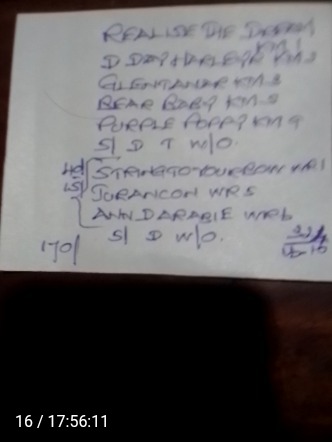 REALISE THE DREAM
KM 1
D DAY HARLEY KM 3
GLENTANAR KM 8
BEAR BABY KM 5
PURPLE POPPY KM 9
S/ D T W/O.
STRING TO YOUR BOW WR1
JURANCON WR 5
ANN D ARABIE WR 6
S/ D W/O.
170/
16 / 17:56:11